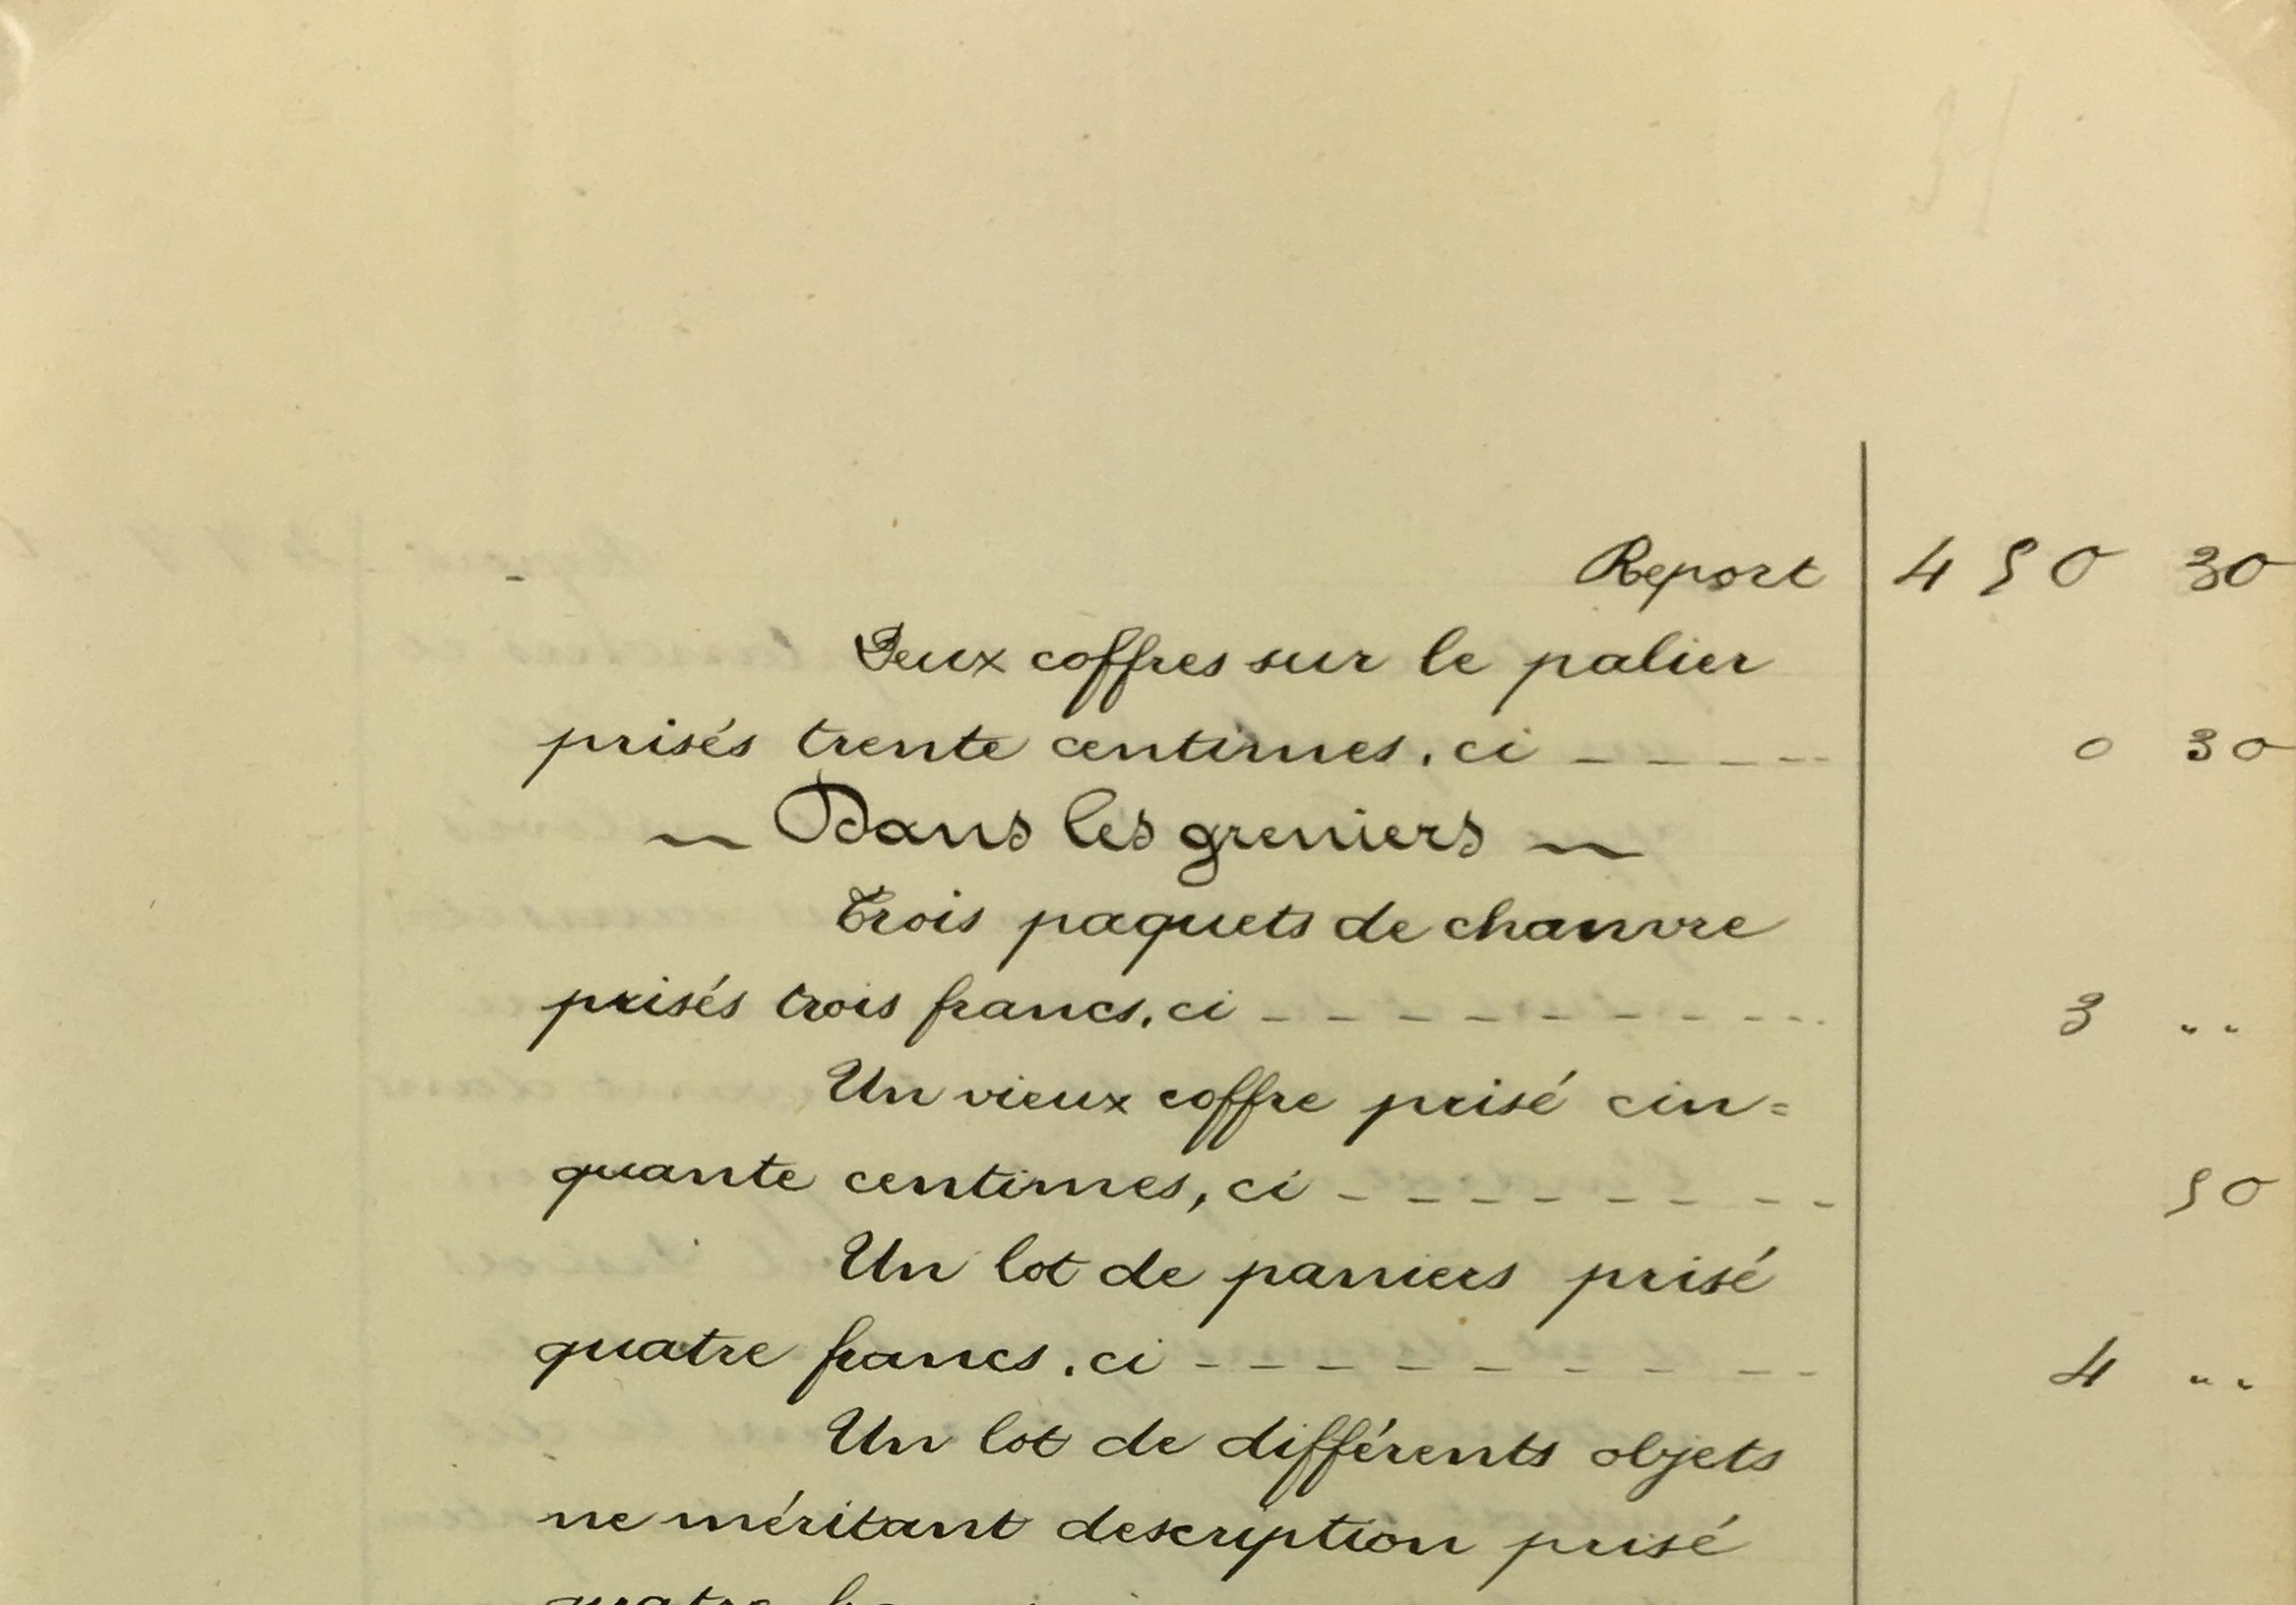 Report 450 30
Deux coffres sur le palier
prisés trente centimes. ci _ _ _ _ _ 0 30
~ Dans les greniers ~
Trois paquets de chanvre
prisés trois francs. ci _ _ _ _ _ _ _ _ _ 3 ..
Un vieux coffre prisé cin=
quante centimes, ci _ _ _ _ _ _ _ _ 50
Un lot de paniers prisé
quatre francs. ci _ _ _ _ _ _ _ _ _ 4 ..
Un lot de différents objets
ne méritant description prisé
quatre